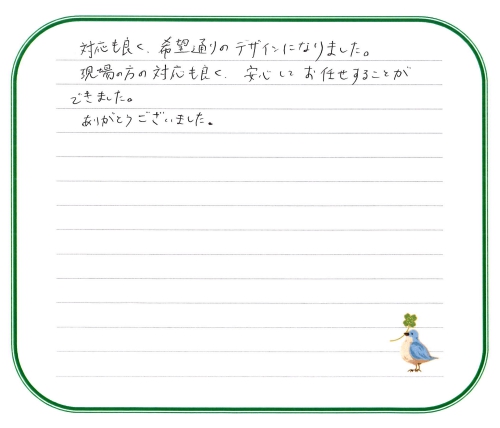 対応も良く、希望通りのデザインになりました。
現場の方の対応も良く、安心してお任せすることが
できました。
ありがとうございました。